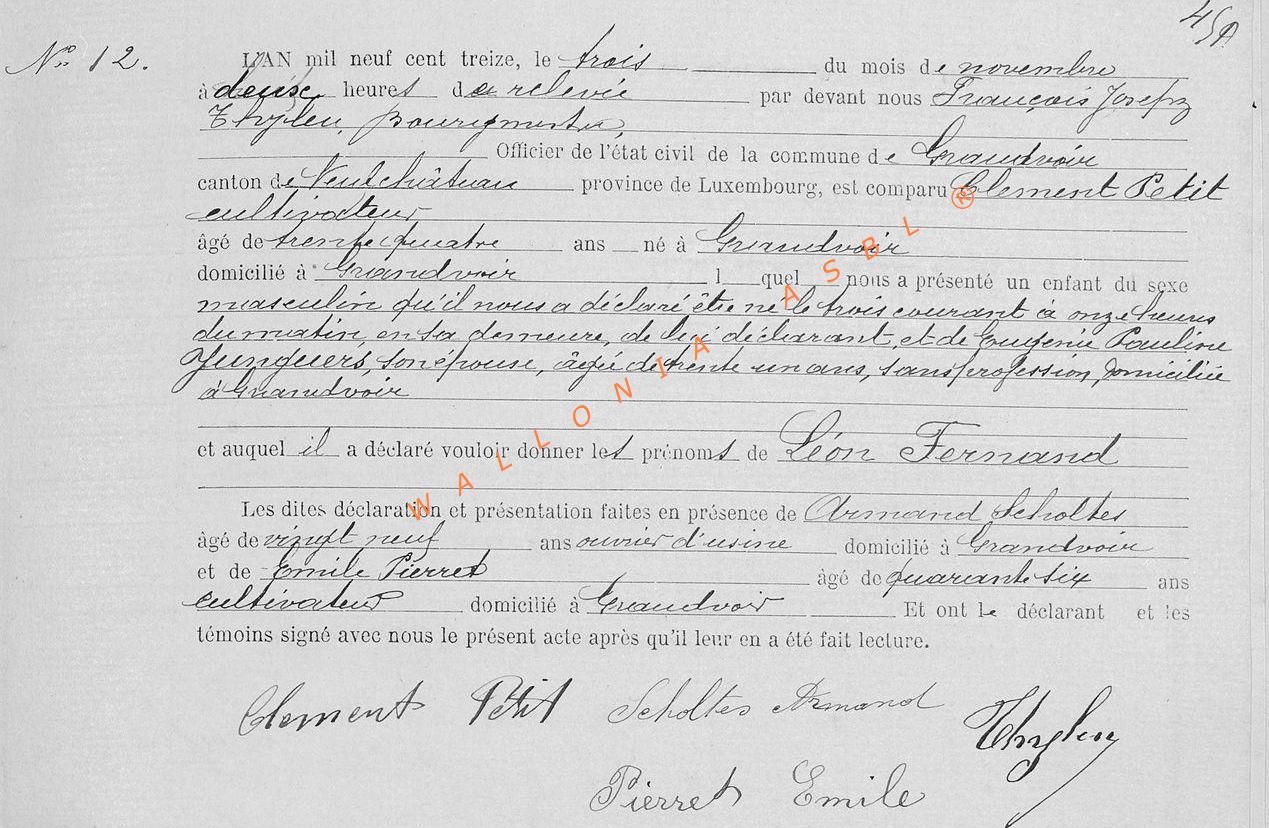 45A
No 12.
L'AN mil neuf cent treize, le trois du mois de novembre
à deux heures de relevée par devant nous François Joseph
Bourgmestre,
Officier de l'état civil de la commune de Grandvoir
canton de Neufchâteau province de Luxembourg, est comparu Clement Petit
cultivateur
âgé de trente quatre ans né à Grandvoir
domicilié à Grandvoir l quel nous a présenté un enfant du sexe
masculin qu'il nous a déclaré être né le trois courant à onze heures
du matin, en sa demeure, de lui déclarant, et de Eugénie Pauline
Junguers, son épouse, âgée de trente un ans, sans profession, domiciliée
à Grandvoir
et auquel il a déclaré vouloir donner les prénoms de Léon Fernand
Les dites déclaration et présentation faites en présence de Armand Scholtes
âgé de vingt neuf ans ouvrier d'usine domicilié à Grandvoir
et de Emile Pierret âgé de quarante six ans
cultivateur domicilié à Grandvoir Et ont le déclarant et les
témoins signé avec nous le présent acte après qu'il leur en a été fait lecture.
Clement Petit Scholtes Armand
Pierret Emile
WALLONIA ASBL ®